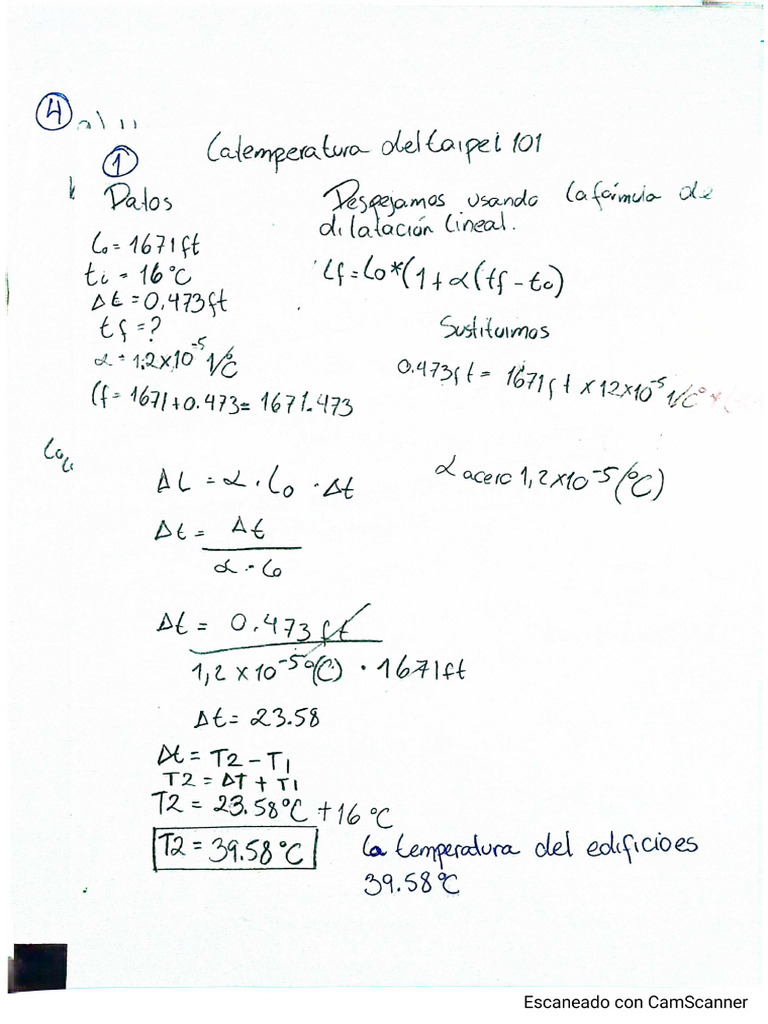 4
1
La temperatura del taipei 101
Datos
Lo = 1671 ft
ti = 16 °C
Δt = 0.473 ft
tf = ?
α = 1.2 x 10⁻⁵ 1/°C
Lf = 1671 + 0.473 = 1671.473
Despejamos usando la fórmula de
dilatación lineal.
Lf = Lo * (1 + α (tf - to)
Sustituimos
0.473 ft = 1671 ft x 12 x 10⁻⁵ 1/C°
ΔL = α · Lo · Δt
α acero 1,2 x 10⁻⁵ (°C)
Δt = Δt
α · Lo
Δt = 0.473 ft
1,2 x 10⁻⁵ °(C) · 1671 ft
Δt = 23.58
Δt = T2 - T1
T2 = ΔT + T1
T2 = 23.58 °C + 16 °C
T2 = 39.58 °C
la temperatura del edificio es
39.58 °C
Escaneado con CamScanner